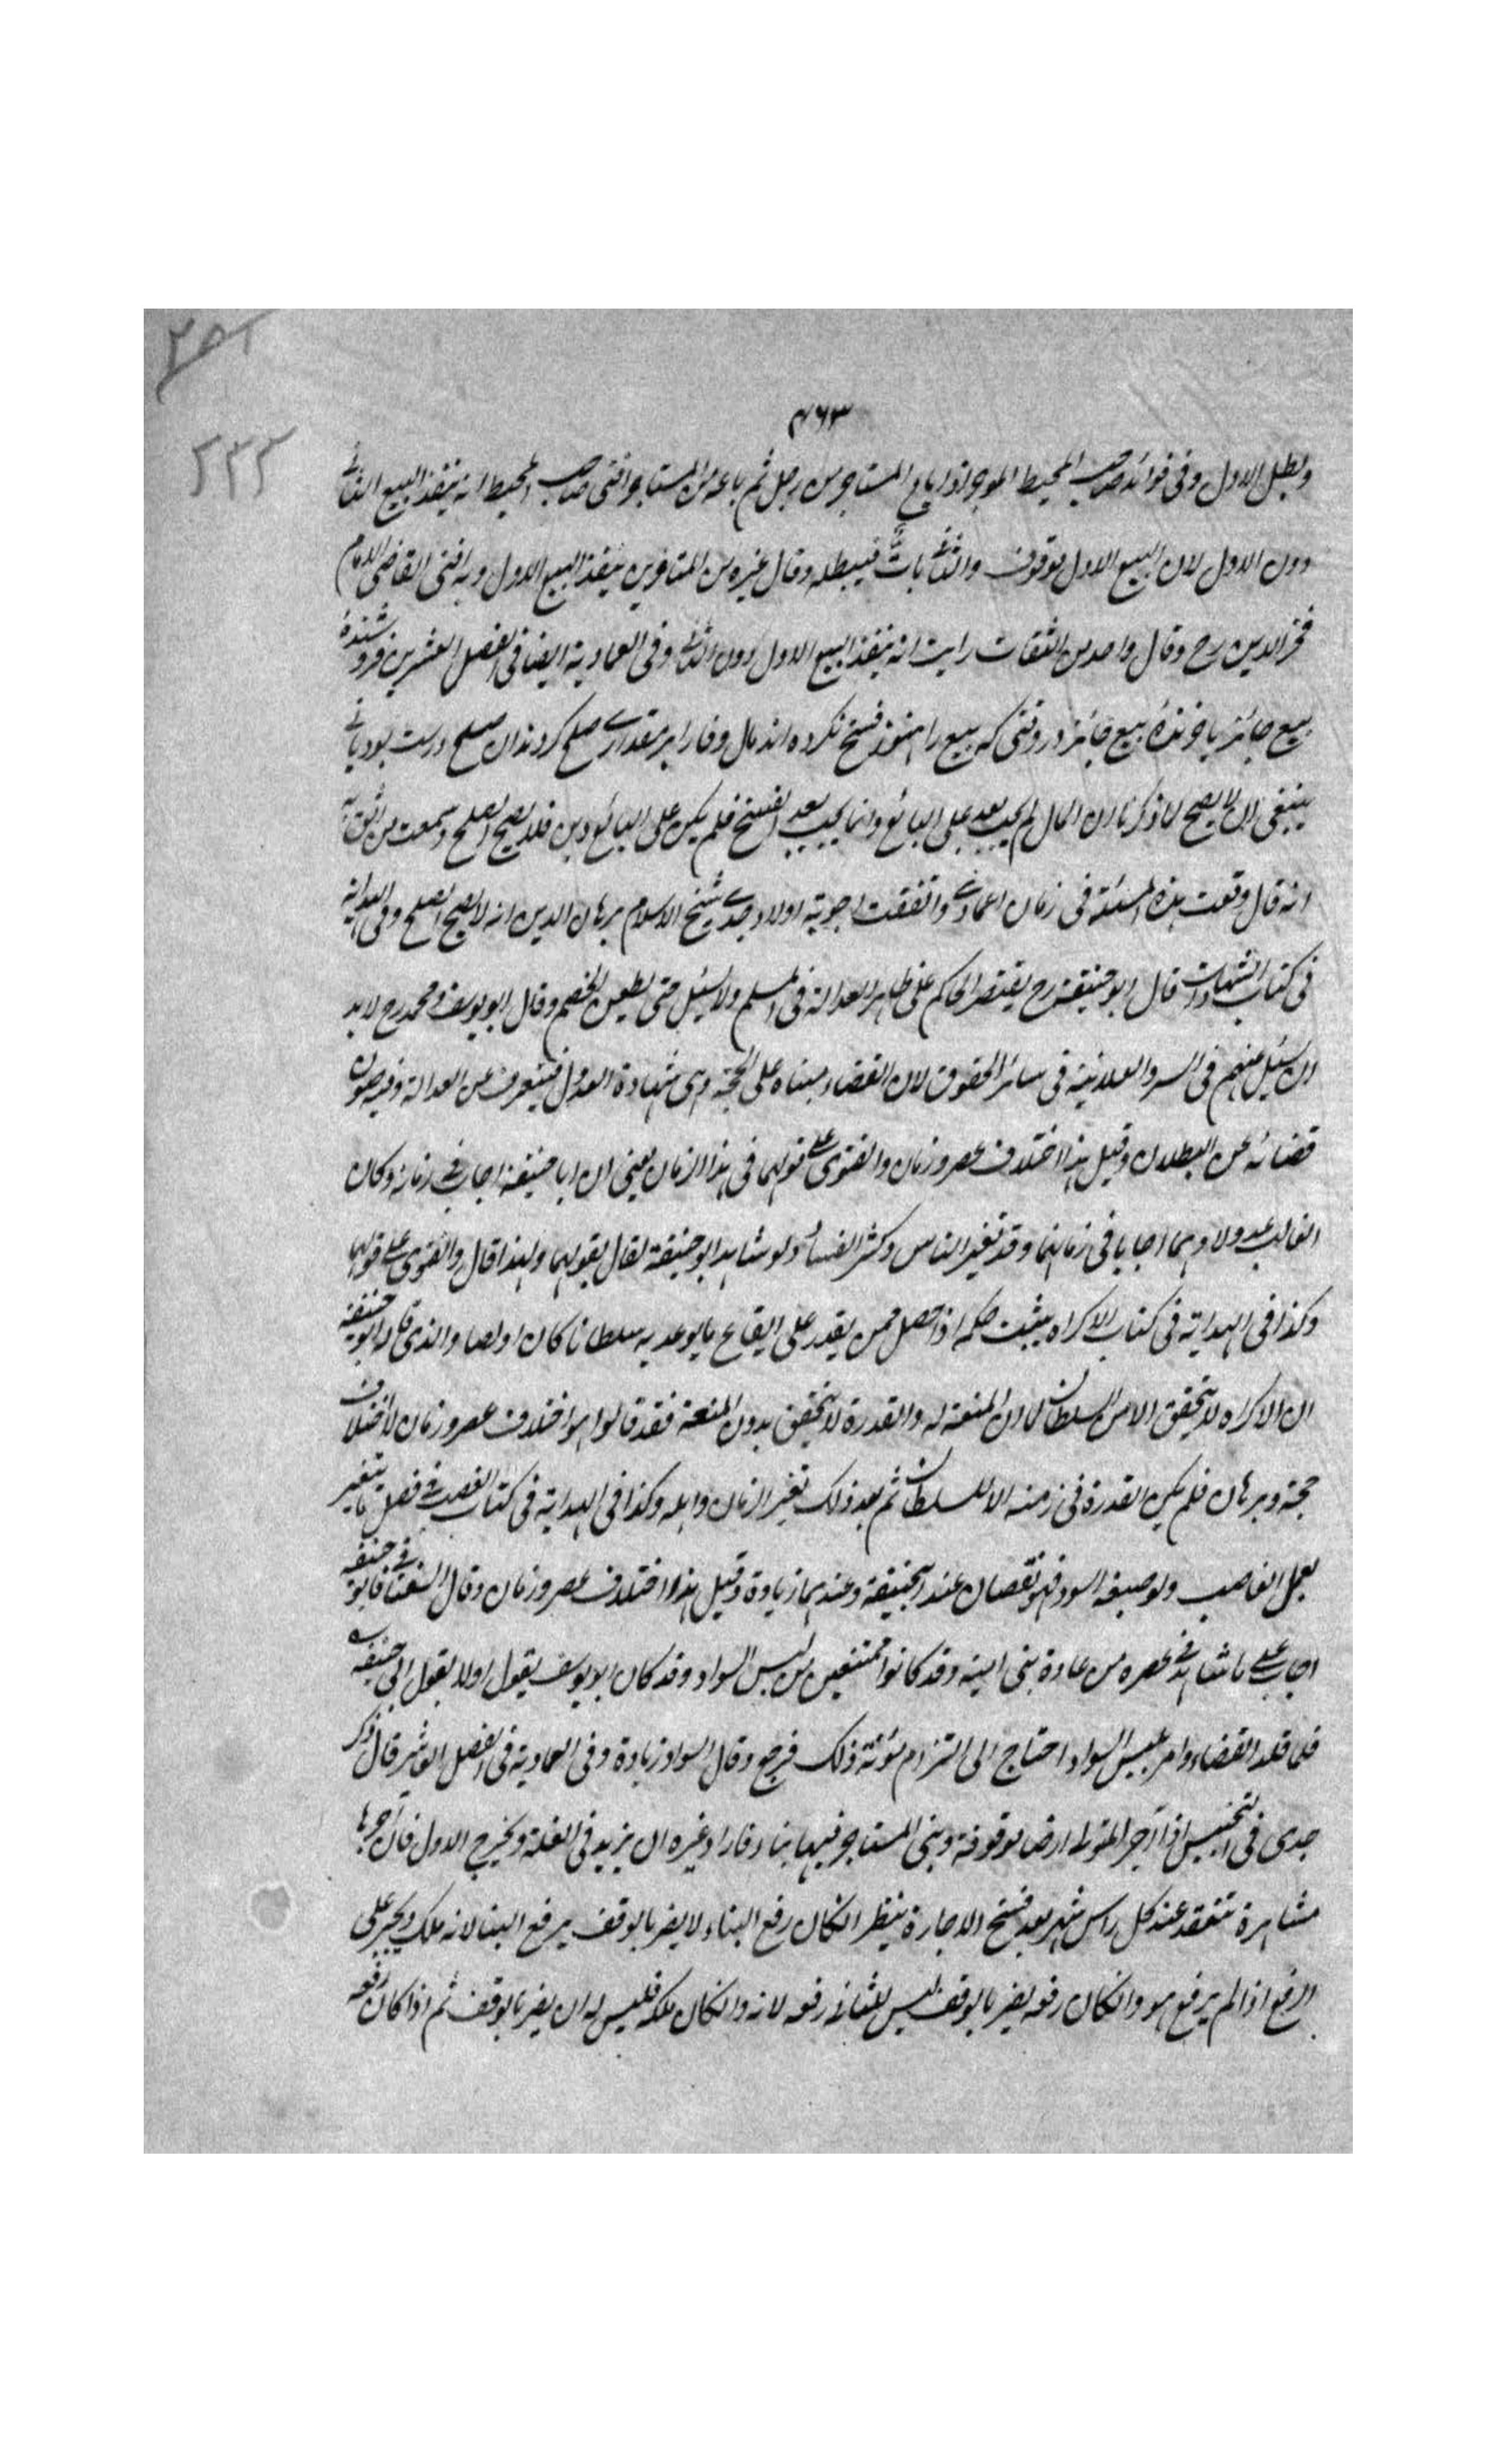 ۴۶۳
۲۳۲
وبطل الاول وفی فوائد صاحب المحیط الموجر اذا باع المستاجر من رجل ثم باعه من المستاجر افتی صاحب المحیط انه ینفذ البیع الثانی
دون الاول لان البیع الاول موقوف والثانی باتٌّ فیبطله وقال غیره من المتاخرین ینفذ البیع الاول وبه افتی القاضی الامام
فخر الدین رح وقال واحد من الثقات رایت انه ینفذ البیع الاول دون الثانی وفی العمادیة ایضا فی الفصل العشرین فروشندهٔ
بیع جائز با خرندهٔ بیع جائز در وقتی که بیع را هنوز فسخ نکرده اند بمال وفا را بر مقداری صلح کردند ان صلح درست بود یا نی
ینبغی ان لا یصح لما ذکرنا ان المال لم یجب بعد علی البائع وانما یجب بعد الفسخ فلم یکن علی البائع دین فلا یصح الصلح وسمعت من الثقة
انه قال وقعت هذه المسئلة فی زمان اعمامی واتفقت اجوبة اولاد جدی شیخ الاسلام برهان الدین انه لا یصح الصلح وفی الهدایة
فی کتاب الشهادات قال ابو حنیفة رح یقتصر الحاکم علی ظاهر العدالة فی المسلم ولا یسئل حتی یطعن الخصم وقال ابو یوسف ومحمد رح لا بد
ان یسئل عنهم فی السر والعلانیة فی سائر الحقوق لان القضاء مبناه علی الحجة وهی شهادة العدول فیتعرف عن العدالة وفیه صون
قضائه عن البطلان وقیل هذا اختلاف عصر وزمان والفتوی علی قولهما فی هذا الزمان یعنی ان ابا حنیفة اجاب فی زمانه وکان
الغالب عدولا وهما اجابا فی زمانهما وقد تغیر الناس وکثر الفساد ولو شاهد ابو حنیفة لقال بقولهما ولهذا قال والفتوی علی قولهما
وکذا فی الهدایة فی کتاب الاکراه یثبت حکمه اذا حصل ممن یقدر علی ایقاع ما یوعد به سلطانا کان او لصا والذی قاله ابو حنیفة
ان الاکراه لا یتحقق الا من السلطان لما ان المنعة له والقدرة لا یتحقق بدون المنعة فقد قالوا هو اختلاف عصر وزمان لا اختلاف
حجة وبرهان فلم یکن القدرة فی زمنه الا للسلطان ثم بعد ذلک تغیر الزمان واهله وکذا فی الهدایة فی کتاب الغصب فی فصل ما یتغیر
بعمل الغاصب ولو صبغه اسود فهو نقصان عند ابیحنیفة وعندهما زیادة وقیل هذا اختلاف عصر وزمان وقال فابو حنیفة
اجاب علی ما شاهد فی عصره من عادة بنی امیة وقد کانوا ممتنعین من لبس السواد وقد کان ابو یوسف یقول اولا بقول ابی حنیفة
فلما قلد القضاء وامر بلبس السواد احتاج الی التزام مؤنة ذلک فرجع وقال السواد زیادة وفی العمادیة فی الفصل العاشر قال ذکر
جدی فی التجنیس اذا آجر المتولی ارضا موقوفة وبنی المستاجر فیها بناء فاراد غیره ان یزید فی الغلة ویخرج الاول فان آجرها
مشاهرة تنعقد عند کل راس شهر بعد فسخ الاجارة ینظر انکان رفع البناء لا یضر بالوقف یرفع البنا لانه ملکه ویجبر علی
الرفع اذا لم یرفع هو وانکان رفعه یضر بالوقف لیس للثانی رفعه لانه وانکان ملکه فلیس له ان یضر بالوقف ثم اذا کان رفعه